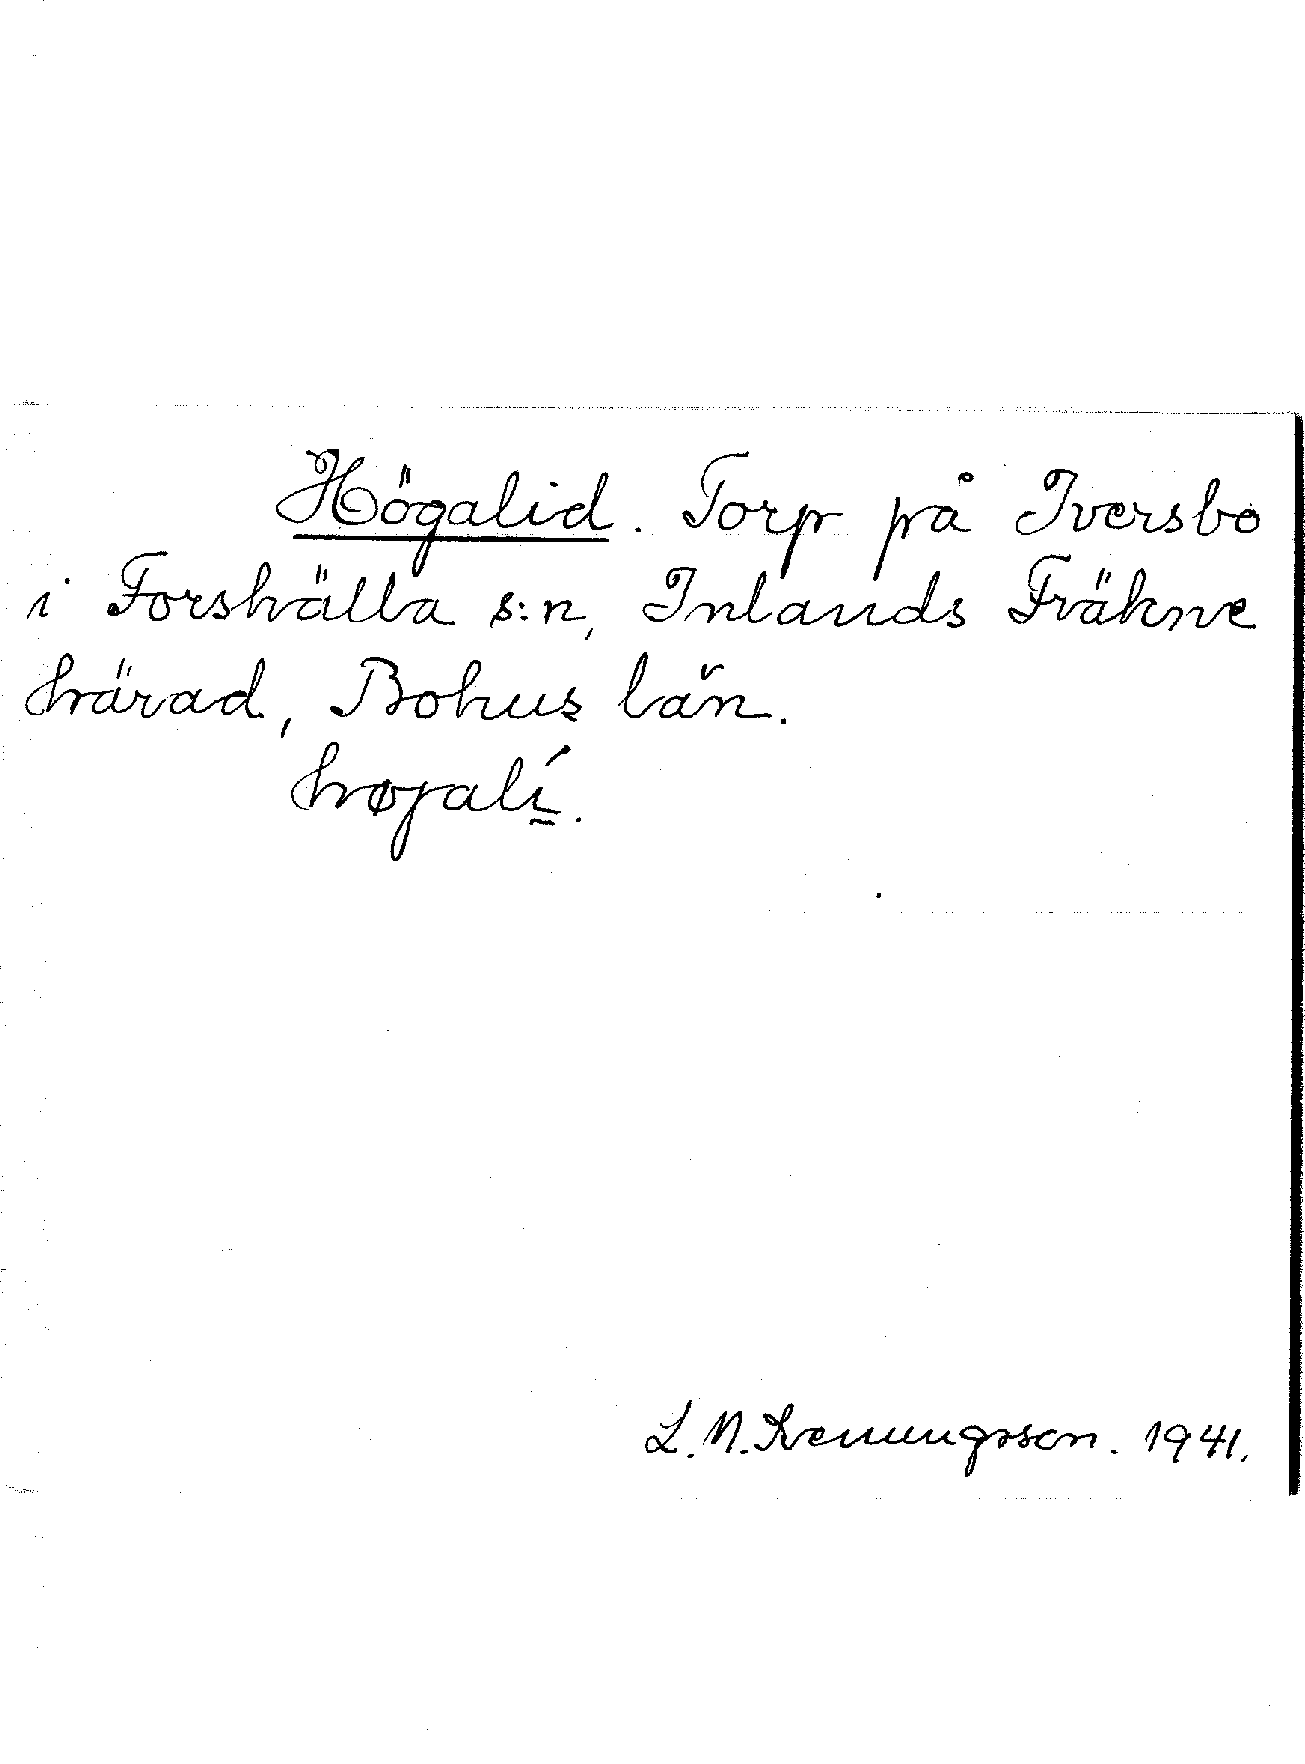 Högalid. Torp på Iversbo
i Forshälla s:n, Inlands Fräkne
härad, Bohus län.
høgalí.
L. N. Svenungsson. 1941.